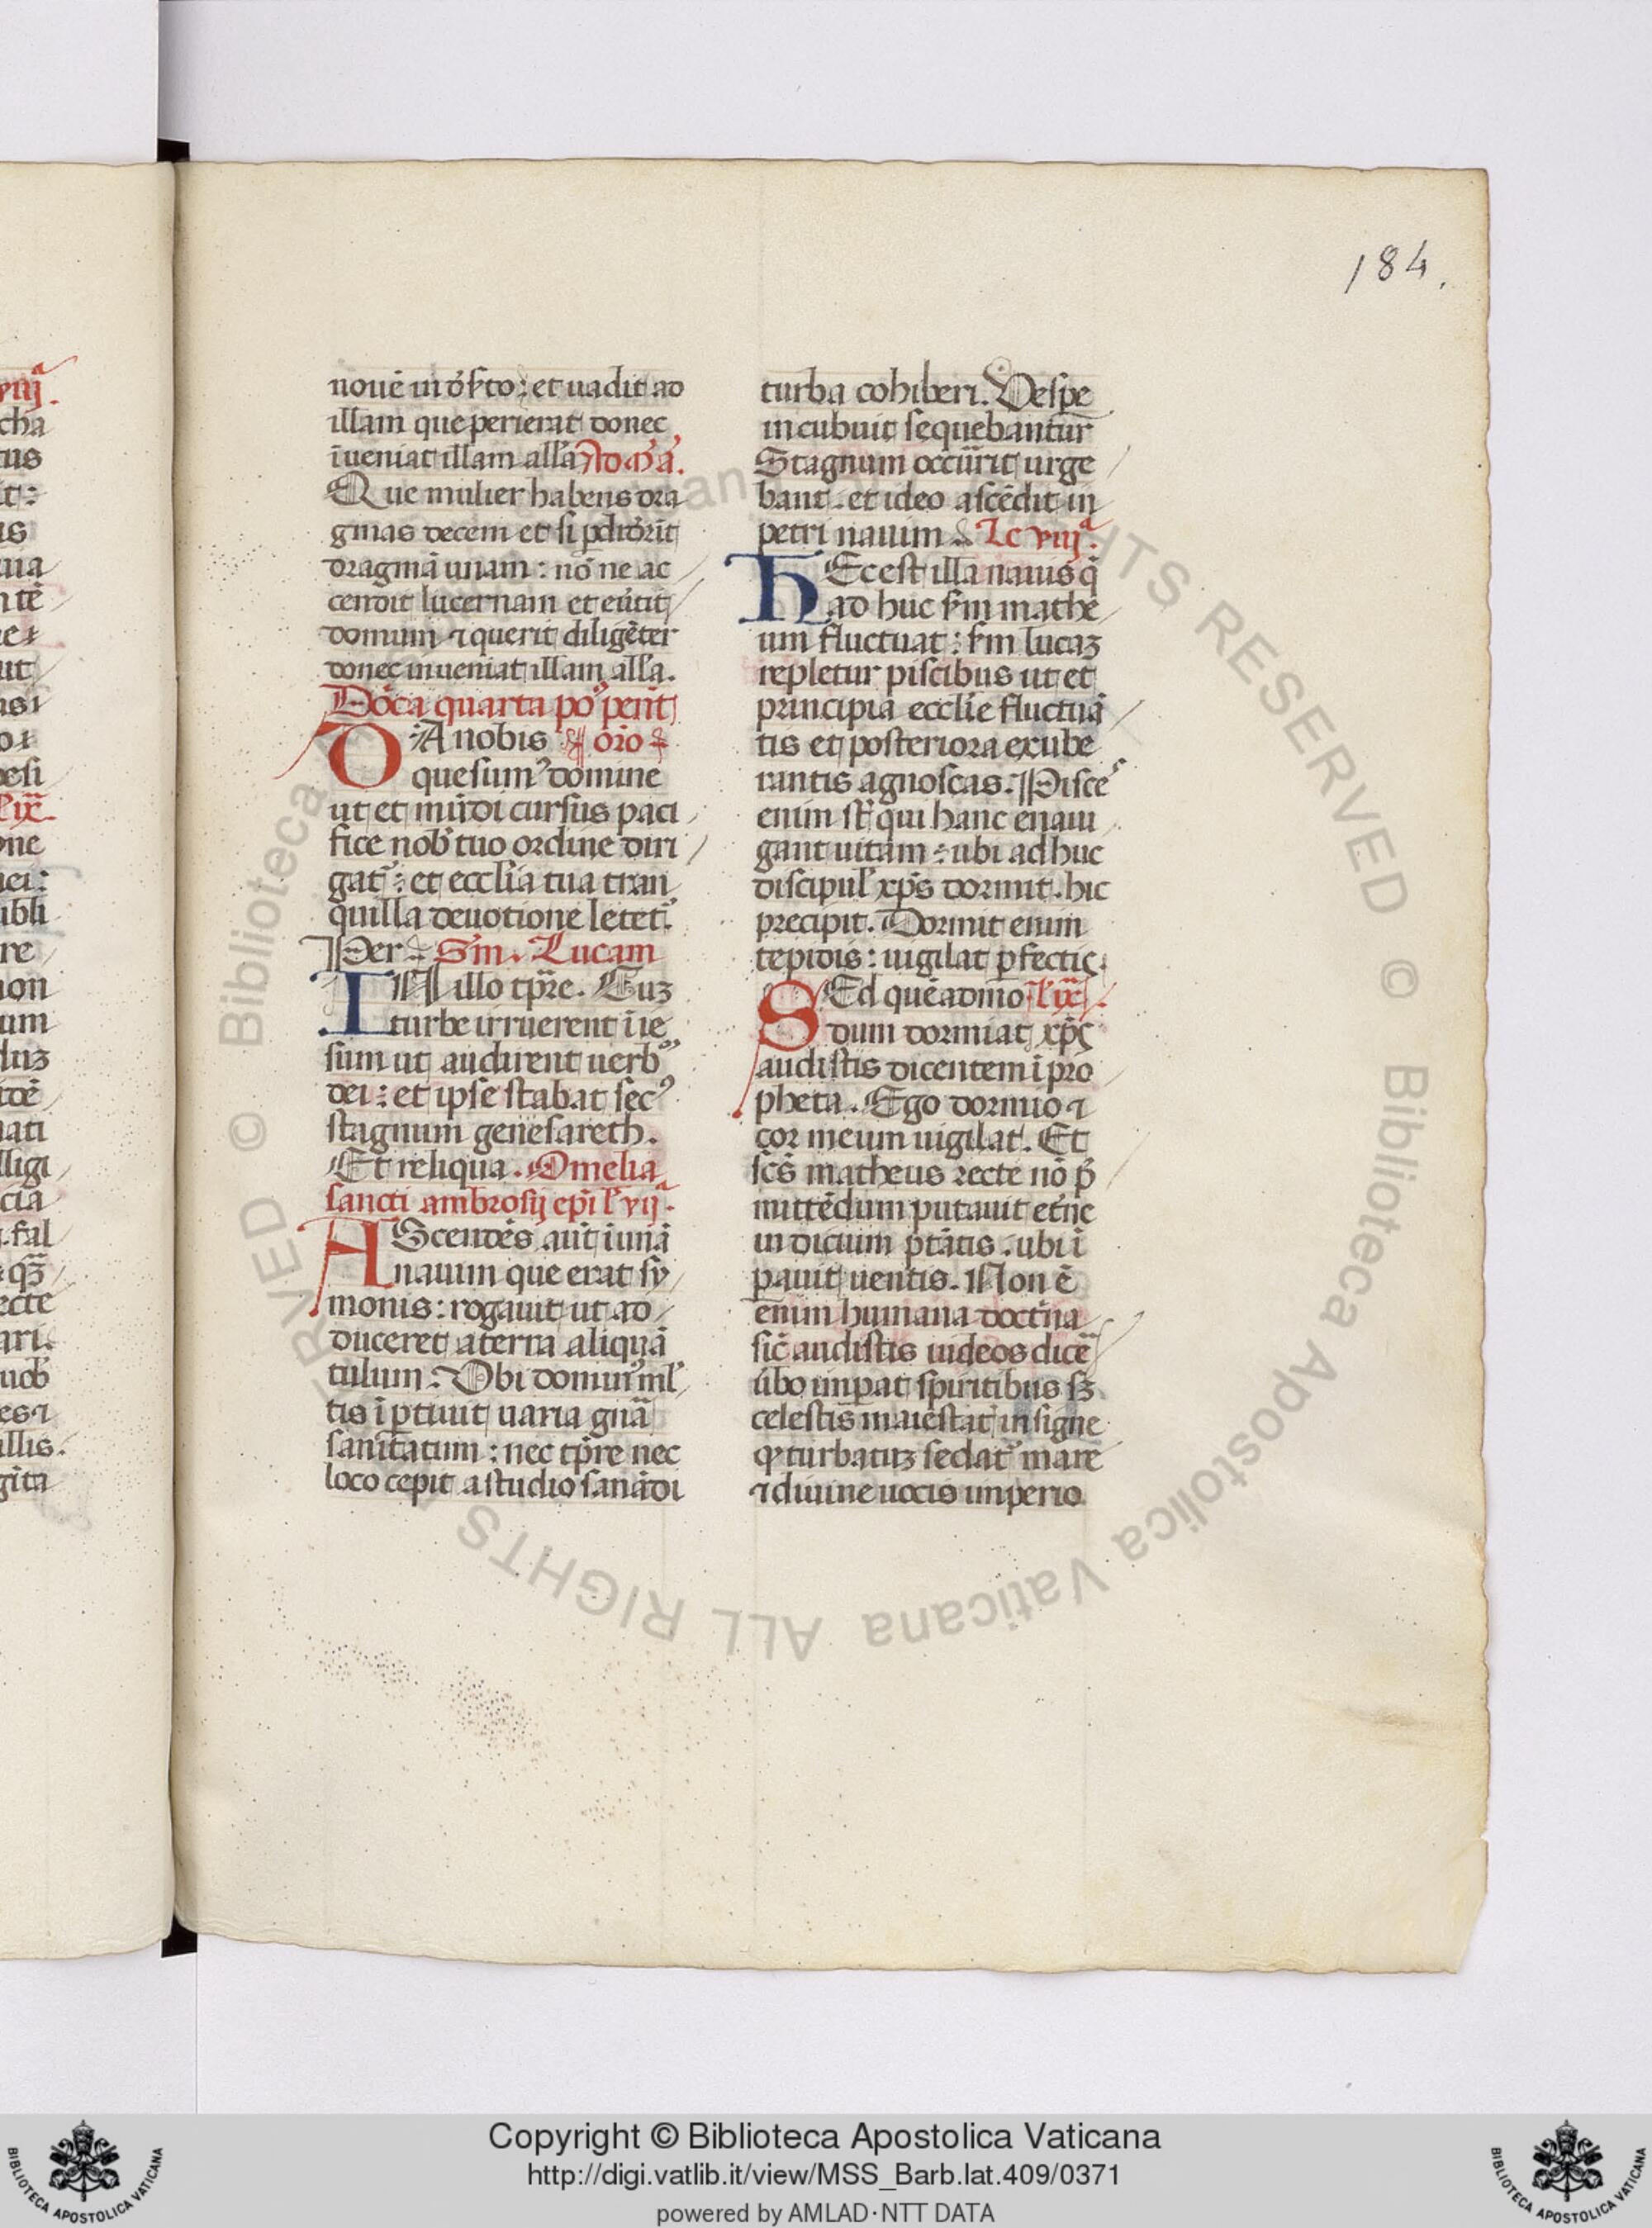 184.
noue in dẽſto: et uadit ad
illam que perierat donec
īueniat illam alla
Que mulier habens dra
gmas decem et ſi pdidẽrit
dragmā unam: nō ne ac
cendit lucernam et euẽtit
domum ⁊ querit diligēter
donec inueniat illam alla.
Dōca quarta po' pent
DA nobis oro
queſum' domine
ut et mūdi curſus paci
fice nob' tuo ordine diri
gat': et eccl'ia tua tran
quilla deuotione letet'.
Per Sm. Lucam
IN illo tp̄re. Cuz
turbe irruerent ī ie
ſum ut audirent uerb
dei: et ipſe ſtabat ſec'
ſtagnum geneſareth.
Et reliqua. Omelia
ſancti ambroſij ep̄i l' vij.
AScendēs aut̄ ī unā
nauim que erat ſy
monis: rogauit ut ad
duceret a terra aliquā
tulum. Ubi domin' ml'
tis īptiuit uaria gn̄a
ſanitatum: nec tp̄re nec
loco cepit a ſtudio ſanādi
turba cohiberi. Veſpe
incubuit ſequebantur
Stagnum occūrit urge
bant. et ideo aſcēdit in
petri nauim Lc viij.
HEc eſt illa nauis q̄
ad huc ſm mathe
um fluctuat: ſm lucaz
repletur piſcibus ut et
principia eccl'ie fluctuā
tis et poſteriora exube
rantis agnoſcas. Piſce
enim ſt̄ qui hanc enaui
gant uitam: ubi ad huc
diſcipul' xp̄s dormit. hic
precipit. Dormit enim
tepidis: uigilat pfectis.
SEd quēadmō l' ix.
dum dormiat xp̄s
audiſtis dicentem ī pro
pheta. Ego dormio ⁊
cor meum uigilat. Et
ſc̄s matheus recte nō p̄
mittēdum putauit et̄ne
indicium p̄tātis. ubi ī
pauit uentis. Non ē
enim humana doctr̄ia
ſic̄ audiſtis iudeos dicē
ūbo impat ſpiritibus ſz
celeſtis maieſtat' inſigne
q' turbatuz ſedat' mare
⁊ diuine uocis imperio
Copyright © Biblioteca Apostolica Vaticana
http://digi.vatlib.it/view/MSS_Barb.lat.409/0371
powered by AMLAD·NTT DATA